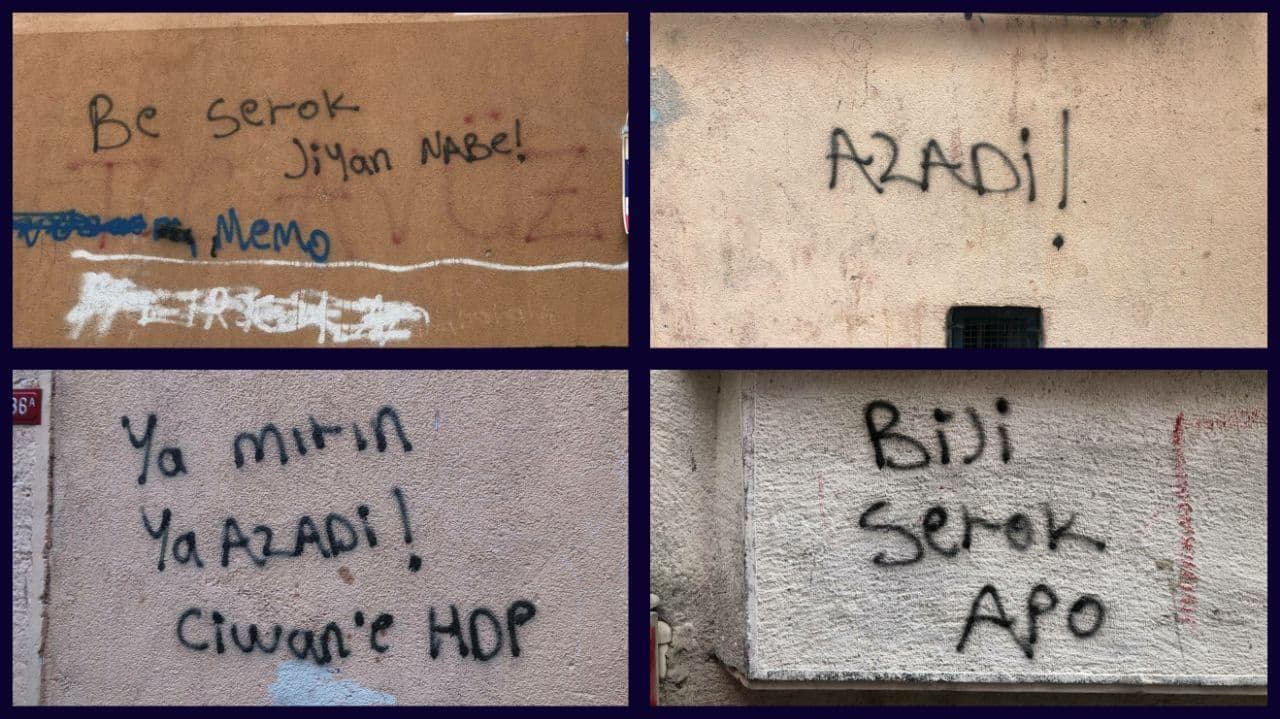 Be serok
Jiyan NABe!
Memo
AZADi!
Ya mirin
Ya AZADi!
Ciwan'e HDP
36A
BiJi
Serok
APO